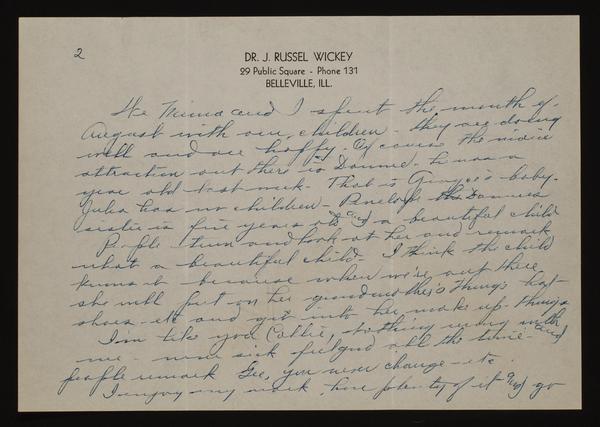 2
DR. J. RUSSEL WICKEY
29 Public Square - Phone 131
BELLEVILLE, ILL.
We Minna and I spent the month of
August with our children - they are doing
well and are happy. Of course the main
attraction out there is Donnie - he was a
year old last week - That is Grayce's baby.
Julia has no children - Penelope Donnies
sister is five years old and a beautiful child
People turn and look at her and remark
what a beautiful child - I think the child
knows it because when we're out there
she will put on her grandmother's things hat -
shoes - etc and get into her make up - things
I'm like you Callie, nothing wrong with
me - never sick feel good all the time - and
people remark Gee, you never change - etc.
I enjoy my work, have plenty of it and go